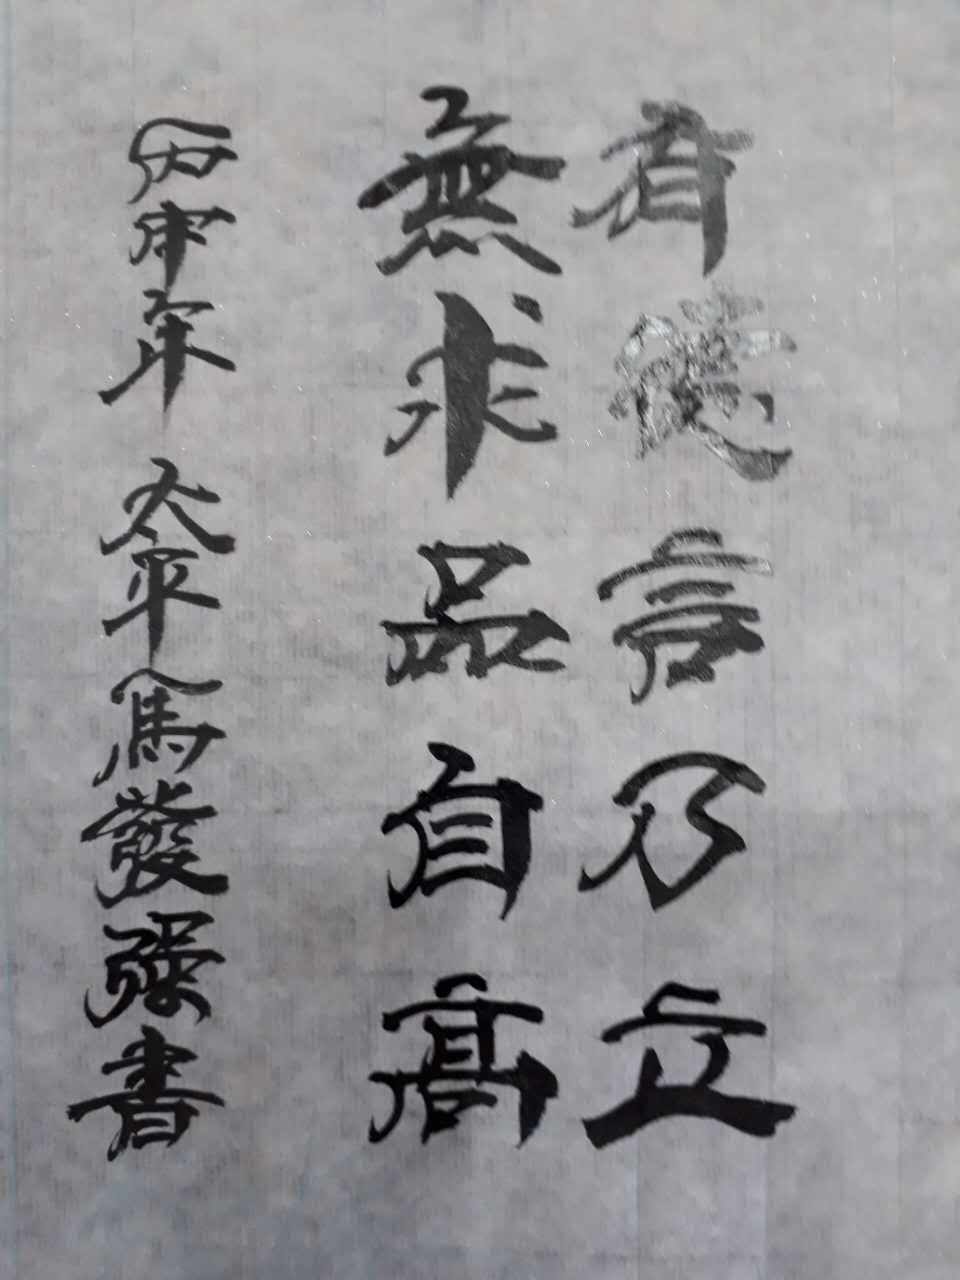 有德言乃立
無求品自高
丙申年 太平馬發強書